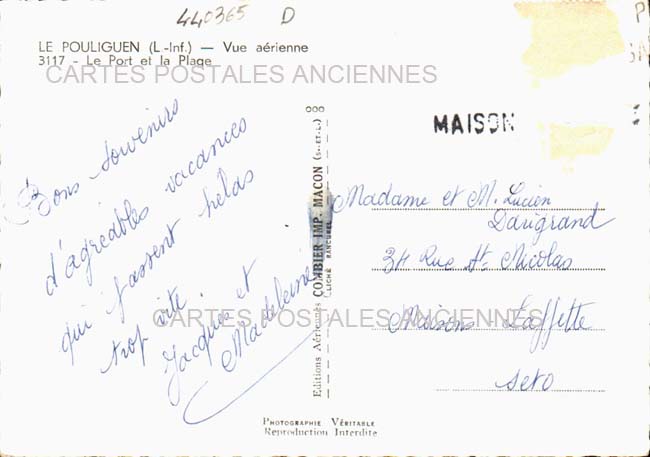 440365 D
LE POULIGUEN (L.-Inf.) — Vue aérienne
3117 - Le Port et la Plage
CARTES POSTALES ANCIENNES
Bons souvenirs
d'agréables vacances
qui passent hélas
trop vite.
Jacques et
Madeleine
Editions Aériennes COMBIER IMP. MACON (S.-ET-L.)
CLICHÉ RANCUREL
MAISON
Madame et M. Lucien
Darigrand
34 Rue St. Nicolas
Maisons Laffitte
CARTES POSTALES ANCIENNES
Photographie Véritable
Reproduction Interdite